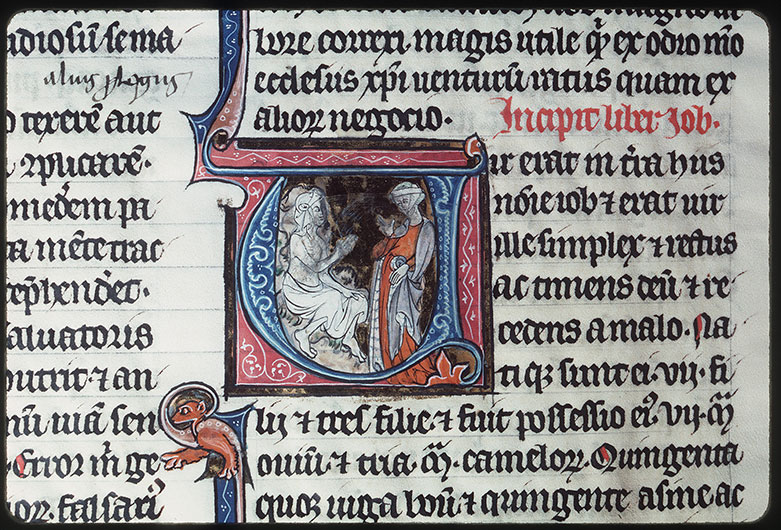 udiosū sema
alius plogus
o texerē aut
medēm pa
ta mēte trac
rephendet.
saluatoris
nutrit ⁊ an
nū iuā sen
Error in ge
ior falsari
lore correxi. magis utile qd ex odio meo
ecclesiis xpi uenturū ratus quam ex
alioꝝ negocio. Incipit liber Job.
Vir erat in tr̄a hus
noīe iob ⁊ erat uir
ille simplex ⁊ rectus
ac timens deū ⁊ re
cedens a malo. Na
ti qꝫ sunt ei. vij. fi
lij ⁊ tres filie ⁊ fuit possessio ei⁹. vij. m̄
ouiū ⁊ tria. m̄. cameloꝝ. Quingenta
quoqꝫ iuga boū ⁊ quingente asine ac